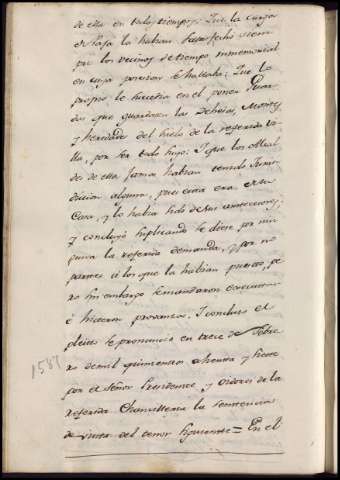 de ella en todo tiempo; Que la carga
el Pasa la habian satisfecho siem
pre los vecinos de tiempo inmemorial
en cuya posesion se hallaba; Que lo
proprio le sucedia en el poner Guar
das que guardasen las Dehesas, Montes
y heredades del suelo de la referida Vi
lla, por ser todo suyo: I que los Alcal
des de ella jamas habian tenido Juris
diccion alguna, pues esta era de su
Casa, y lo habia sido de sus antecesores;
y concluyó suplicando se diese por nin
guna la referida demanda, y por no
partes á los que la habian puesto, pe
ro sin embargo se mandaron
é hicieron provanza. I concluso el
pleito se pronuncio en trece de Febre
ro de mil quinientos ochenta y siete
por el Señor Presidente, y oidores de la
referida Chancilleria la sentencia
de vista del tenor siguiente = En el
1587